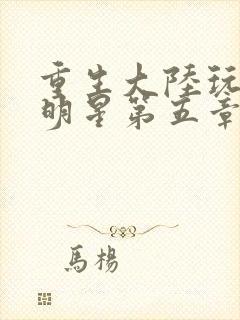 重生大陸玩
明星第五章
馬楊